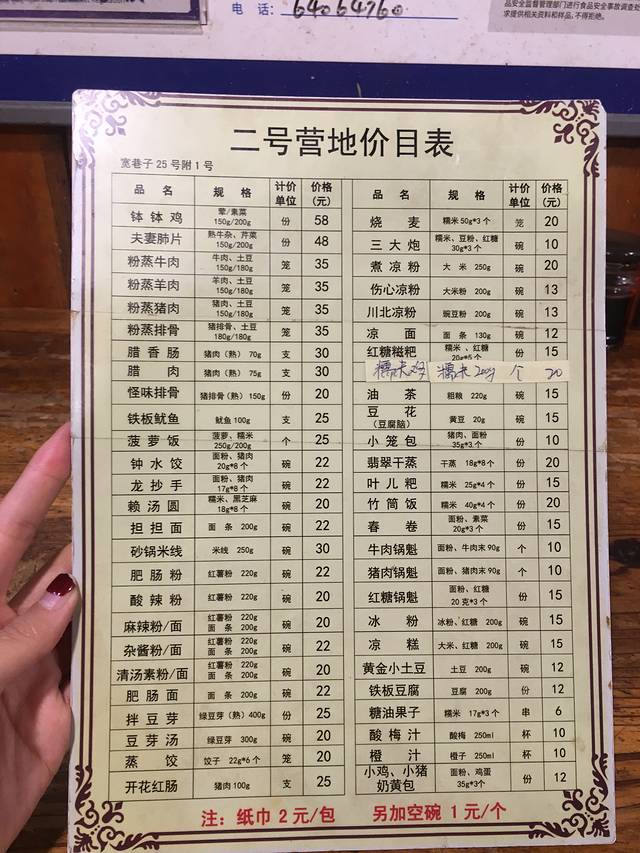 电 话： 64064760
品安全监督管理部门进行食品安全事故调查处
求提供相关资料和样品,不得拒绝。
二号营地价目表
宽巷子25号附1号
品 名 规 格 计价单位 价格(元)
钵钵鸡 荤/素菜 150g/200g 份 58
夫妻肺片 熟牛杂、芹菜 150g/200g 份 48
粉蒸牛肉 牛肉、土豆 150g/180g 笼 35
粉蒸羊肉 羊肉、土豆 150g/180g 笼 35
粉蒸猪肉 猪肉、土豆 150g/180g 笼 35
粉蒸排骨 猪排骨、土豆 180g/200g 笼 35
腊香肠 猪肉(熟) 70g 支 30
腊 肉 猪肉(熟) 75g 支 30
怪味排骨 猪排骨(熟) 150g 份 20
铁板鱿鱼 鱿鱼 100g 支 25
菠萝饭 菠萝、糯米 250g/200g 个 25
钟水饺 面粉、猪肉 20g*8个 碗 22
龙抄手 面粉、猪肉 17g*8个 碗 22
赖汤圆 糯米、黑芝麻 18g*8个 碗 20
担担面 面 条 200g 碗 22
砂锅米线 米线 250g 碗 30
肥肠粉 红薯粉 220g 碗 22
酸辣粉 红薯粉 220g 碗 20
麻辣粉/面 红薯粉 220g 面 条 200g 碗 20
杂酱粉/面 红薯粉 220g 面 条 200g 碗 22
清汤素粉/面 红薯粉 220g 面 条 200g 碗 20
肥肠面 面 条 200g 碗 22
拌豆芽 绿豆芽(熟)400g 份 25
豆芽汤 绿豆芽 300g 碗 20
蒸 饺 饺子 22g*6个 笼 20
开花红肠 猪肉100g 支 25
品 名 规 格 计价单位 价格(元)
烧 麦 糯米50g*3个 笼 20
三大炮 糯米、豆粉、红糖 30g*3个 碗 10
煮凉粉 大 米 250g 碗 20
伤心凉粉 大米粉 200g 碗 13
川北凉粉 豌豆粉 200g 碗 13
凉 面 面 条 130g 碗 12
红糖糍粑 糯米 、红糖 20g*5个 碗 15
糯米鸡 糯米200g 个 20
油 茶 粗粮 220g 碗 15
豆 花 (豆腐脑) 黄豆 20g 碗 15
小笼包 猪肉、面粉 35g*3个 个 10
翡翠干蒸 干蒸 18g*8个 份 20
叶儿粑 糯米 25g*4个 份 15
竹筒饭 糯米 40g*4个 份 20
春 卷 面粉、素菜 20g*3个 份 15
牛肉锅魁 面粉、牛肉末90g 个 10
猪肉锅魁 面粉、猪肉末90g 个 10
红糖锅魁 面粉、红糖 20克*3个 份 15
冰 粉 冰粉、红糖 200g 碗 15
凉 糕 大米、红糖 200g 碗 15
黄金小土豆 土豆 200g 碗 12
铁板豆腐 豆腐 200g 份 12
糖油果子 糯米 17g*3个 串 6
酸梅汁 酸梅 250ml 杯 10
橙 汁 橙子 250ml 杯 10
小鸡、小猪奶黄包 面粉、鸡蛋 35g*3个 份 12
注：纸巾2元/包 另加空碗 1元/个